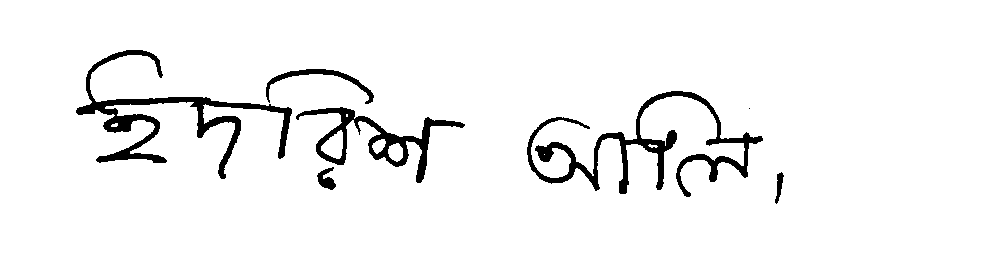 ইদরিশ আলি,